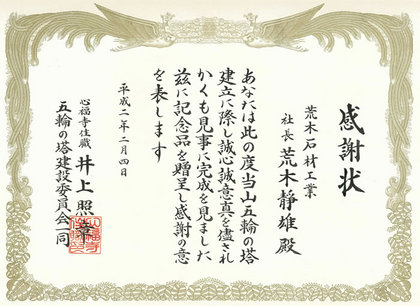 感謝状
荒木石材工業
社長 荒木靜雄 殿
あなたは此の度当山五輪の塔
建立に際し誠心誠意真を儘され
かくも見事に完成を見ました
茲に記念品を贈呈し感謝の意
を表します
平成二年二月四日
心福寺住職 井上照章
五輪の塔建設委員会一同